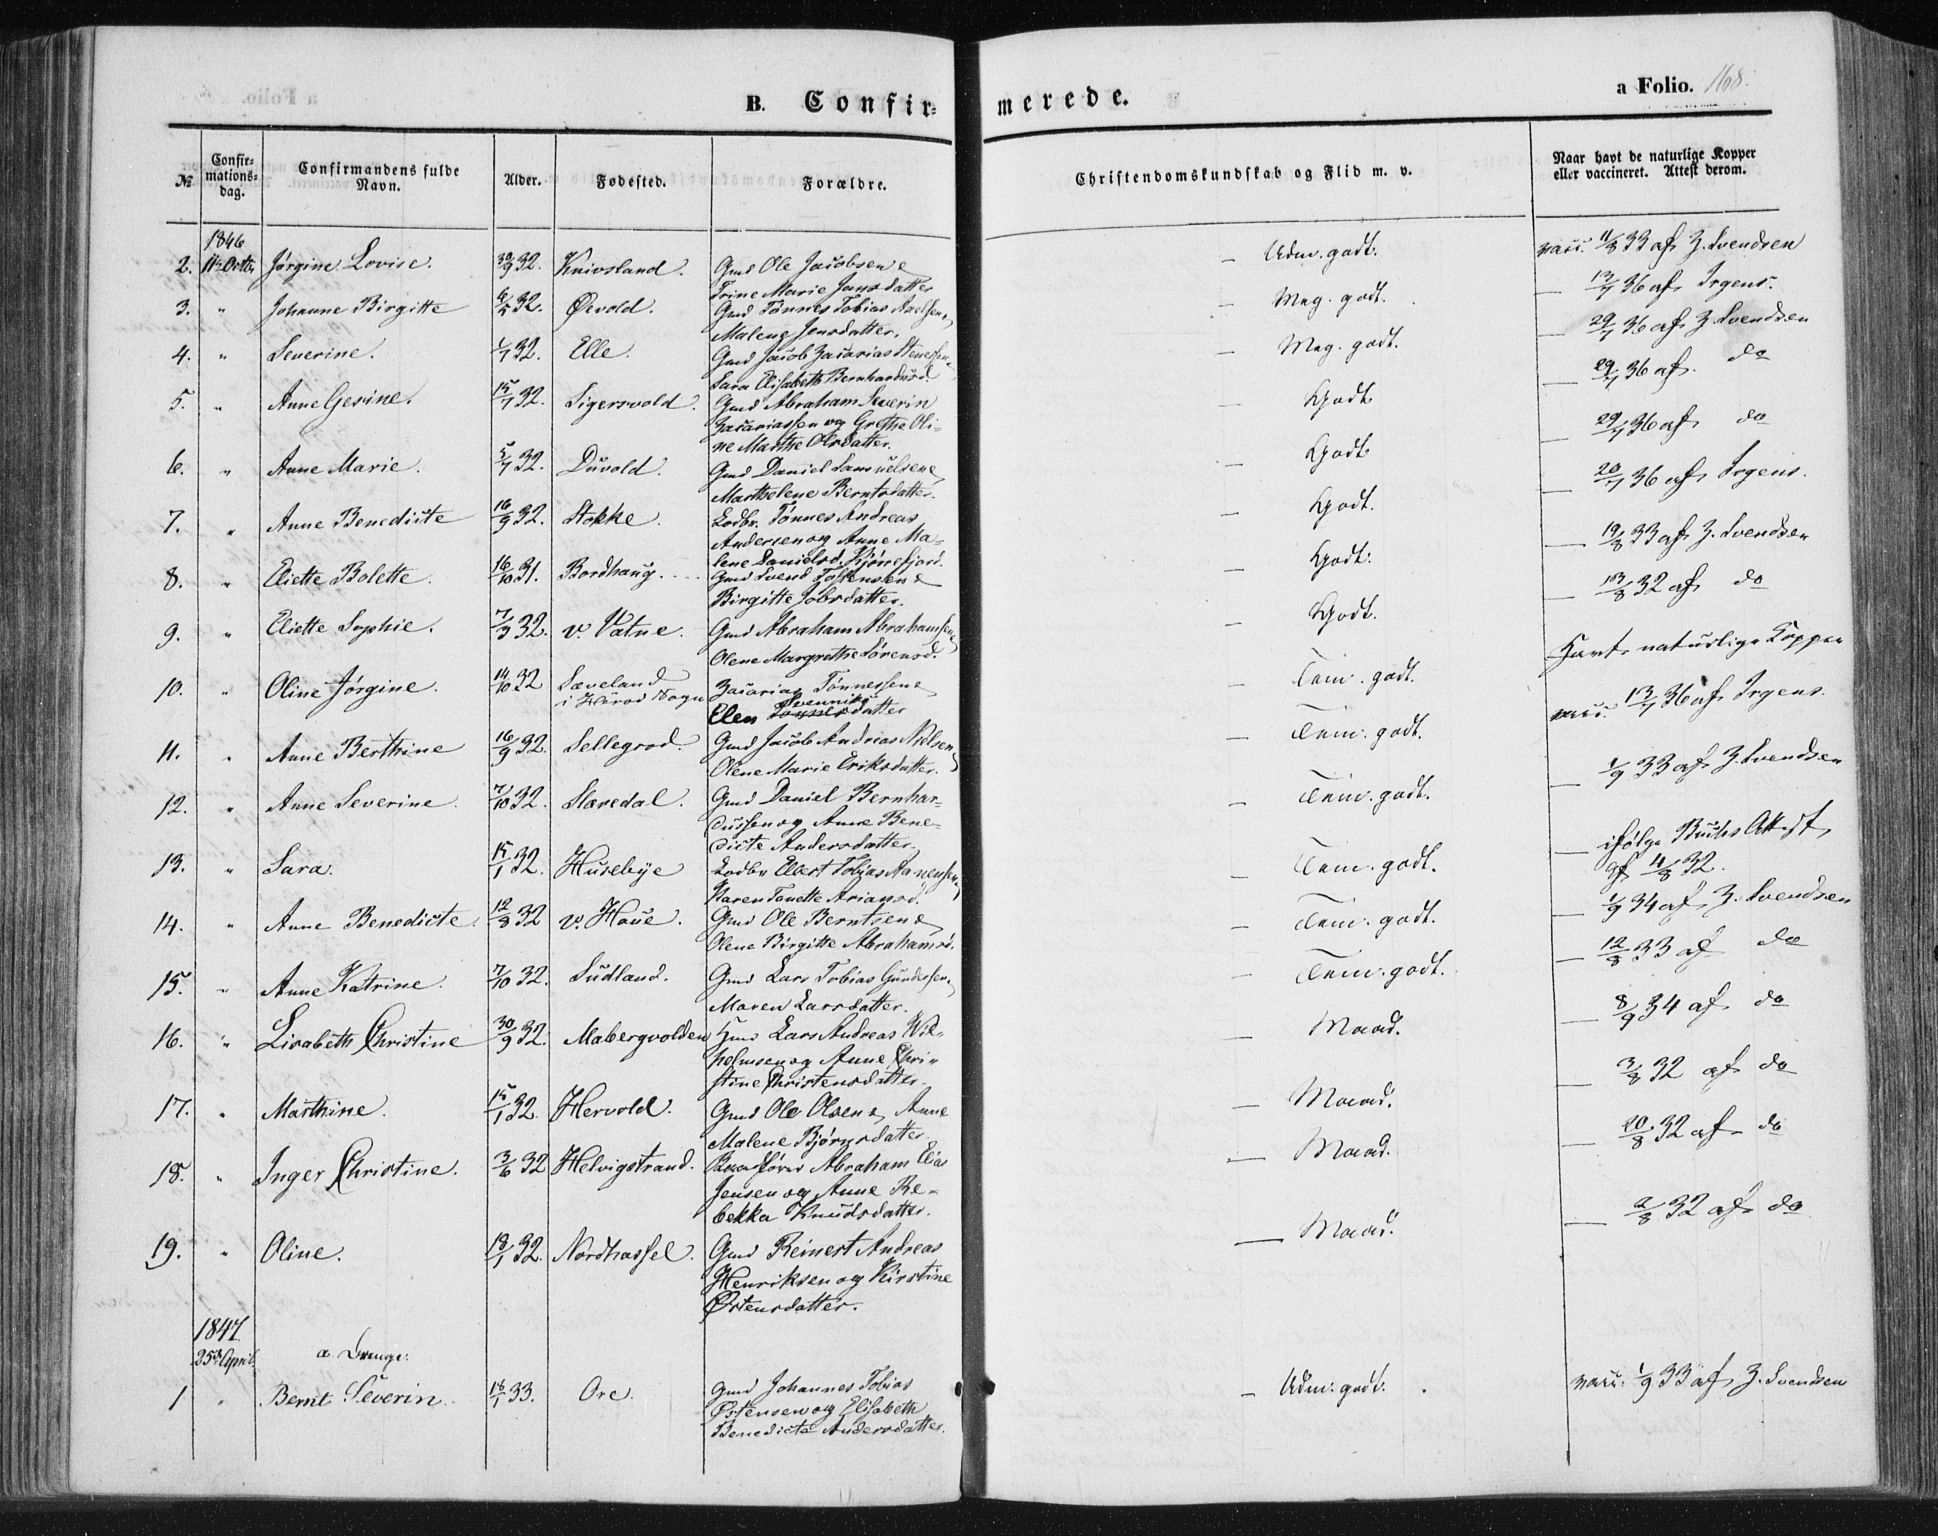 B. Confir-
merede.
a Folio. 168.
№
Confir-
mations-
dag.
Confirmandens fulde
Navn.
Alder.
Fødested.
Forældre.
Christendomskundskab og Flid m. v.
Naar havt de naturlige Kopper
eller vaccineret. Attest derom.
1846
2. 11te Octbr Jørgine Lovise. 30/9 32. Knivsland. Gmd Ole Jacobsen &
Trine Marie Jansdatter
— Udm. godt. vacc. 11/8 33 af Z. Svendsen
3. " Johanne Birgitte 6/5 32. Øvold. Gmd Tønnes Tobias Axelsen &
Malene Jensdatter.
— Meg. godt. — 13/7 36 af Irgens.
4. " Severine. 1/7 32. Elle. Gmd Jacob Zacarias Stenersen &
Sara Elisabeth Bernhardusd.
— Meg. godt. — 29/7 36 af Z. Svendsen
5. " Anne Gesine. 15/7 32. Sigersvold. Gmd Abraham Severin
Zacariassen og Grethe Oli-
ne Marthe Olsdatter.
— Godt — 29/7 36 af do
6. " Anne Marie. 5/7 32. Duvold. Gmd Daniel Samuelsen &
Martholene Berntsdatter.
— Godt — 29/7 36 af do
7. " Anne Benedicte 16/9 32. Stokke. Lodbr. Tønnes Andreas
Andersen og Anne Ma-
lene Danielsd. Kjørrefjord.
— Godt. — 20/7 36 af Irgens.
8. " Eliette Bolette. 16/10 31. Bordhaug. Gmd Svend Torkensen &
Birgitte Jobsdatter.
— Godt: — 19/8 33 af Z. Svendsen
9. " Eliette Sophie. 7/3 32. v. Vatne. Gmd Abraham Abrahamsen &
Olene Margrethe Sørensd.
— Godt. — 13/8 32 af do
10. " Oline Jørgine. 14/10 32 Sæveland
i Herod Sogn Zacarias Tønnessen &
Elen Svennings
datter
— Tem. godt. Havt naturlige Kopper
11. " Anne Berthine 16/9 32. Sellegrod. Gmd Jacob Andreas Nielsen &
Olene Marie Eriksdatter.
— Tem. godt. vacc. 13/7 36 af Irgens.
12. " Anne Severine. 7/10 32. Slævdal. Gmd Daniel Bernhar-
dussen og Anne Bene-
dicte Andersdatter.
— Tem. godt. — 1/9 33 af Z. Svendsen
13. " Sara. 15/1 32. Husebye Lodbr Elert Tobias Aanensen &
Karen Tonette Ariansd.
— Tem. godt. — ifølge Buchs Attest
af 4/8 32.
14. " Anne Benedicte. 12/8 32 v. Haue. Gmd Ole Berntsen &
Olene Birgitte Abrahamsd.
— Tem. godt. — 1/9 34 af Z. Svendsen
15. " Anne Katrine. 7/10 32. Sudland. Gmd Lars Tobias Gundersen &
Maren Larsdatter.
— Tem. godt. — 12/8 33 af do
16. " Lisabeth Christine 30/9 32. Mabergvolden Hmd Lars Andreas Wil-
helmsen og Anne Chri-
stine Christensdatter.
— Maad. — 8/9 34 af do
17. " Marthine. 15/1 32. Hervold. Gmd Ole Olsen & Anne
Malene Bjørnsdatter
— Maad. — 3/8 32 af do
18. " Inger Christine. 3/6 32 Helvigstrand. Baadfører Abraham Elias
Jensen og Anne Re-
bekka Knudsdatter.
— Maad. — 20/8 32 af do
19. " Oline. 18/1 32. Nordhassel. Gmd Reinert Andreas
Henriksen og Kirstine
Østensdatter.
— Maad. — 2/8 32 af do
1847.
25de April. a Drenge:
1 " Bernt Severin. 18/1 33. Ore. Gmd Johannes Tobias
Østensen og Elisabeth
Benedicte Andersdatter.
— Udm: godt. vacc: 1/9 33 af Z. Svendsen